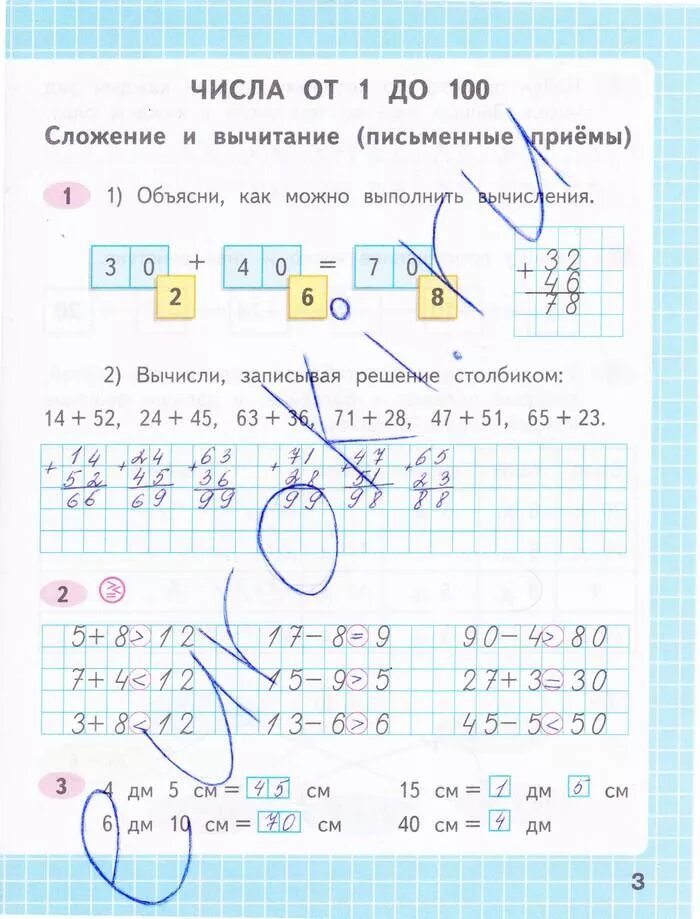 ЧИСЛА ОТ 1 ДО 100
Сложение и вычитание (письменные приёмы)
1 1) Объясни, как можно выполнить вычисления.
30 + 40 = 70
2 6 8
+ 32
46
78
2) Вычисли, записывая решение столбиком:
14 + 52, 24 + 45, 63 + 36, 71 + 28, 47 + 51, 65 + 23.
+14 +24 +63 +71 +47 +65
52 45 36 28 51 23
66 69 99 99 98 88
2
5+8>12 17-8=9 90-4>80
7+4<12 15-9>5 27+3=30
3+8<12 13-6>6 45-5<50
3 4 дм 5 см = 45 см 15 см = 1 дм 5 см
6 дм 10 см = 70 см 40 см = 4 дм
3